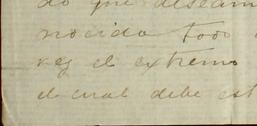 do que deseam
nocida todo
vez el extremo
el cual debe est